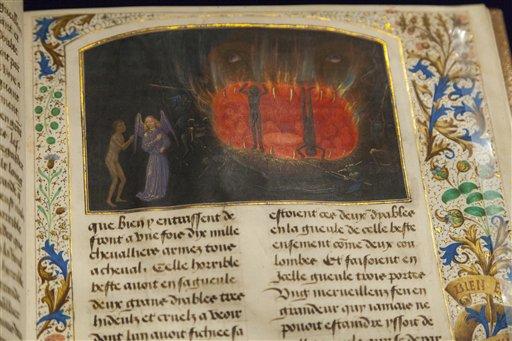 que bien y entraissent de
front a une foiz dix mille
chevalliers armez tous
a cheval. Celle horrible
beste avoit en sa gueule
deux grans dyables tres
hideulx et cruelz a veoir
dont lun avoit fichee sa
estoient ces deux dyables
en la gueule de celle beste
ensement cõme deux cou
lombes. Et faisoient en
icelle gueule trois portes
Ung merveilleux feu en
grandeur qui jamais ne
pouoit estaindre yssoit de